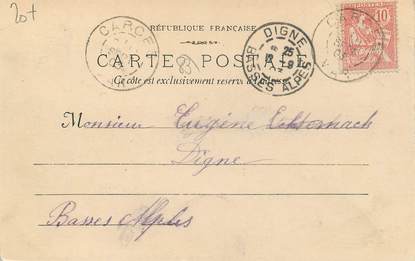 20+
RÉPUBLIQUE FRANÇAISE
CARTE POSTALE
Ce côté est exclusivement réservé à
DIGNE
BASSES ALPES
10
Monsieur Eugène
Digne
Basses Alpes